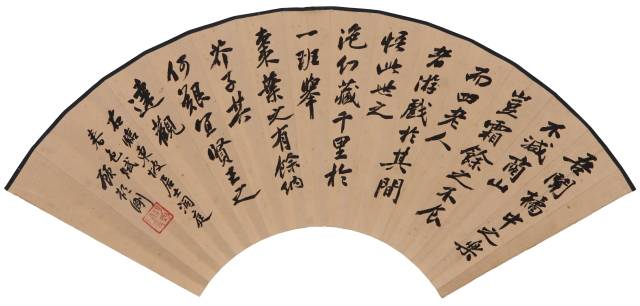 吾聞橘中之樂
不減商山
豈霜餘之不食
而四老人
者游戲於其間
悟此世之
泡幻藏千里於
一班舉
棗葉之有餘納
芥子其
何艱宜賢王之
達觀
右臨東坡居士洞庭
春色賦